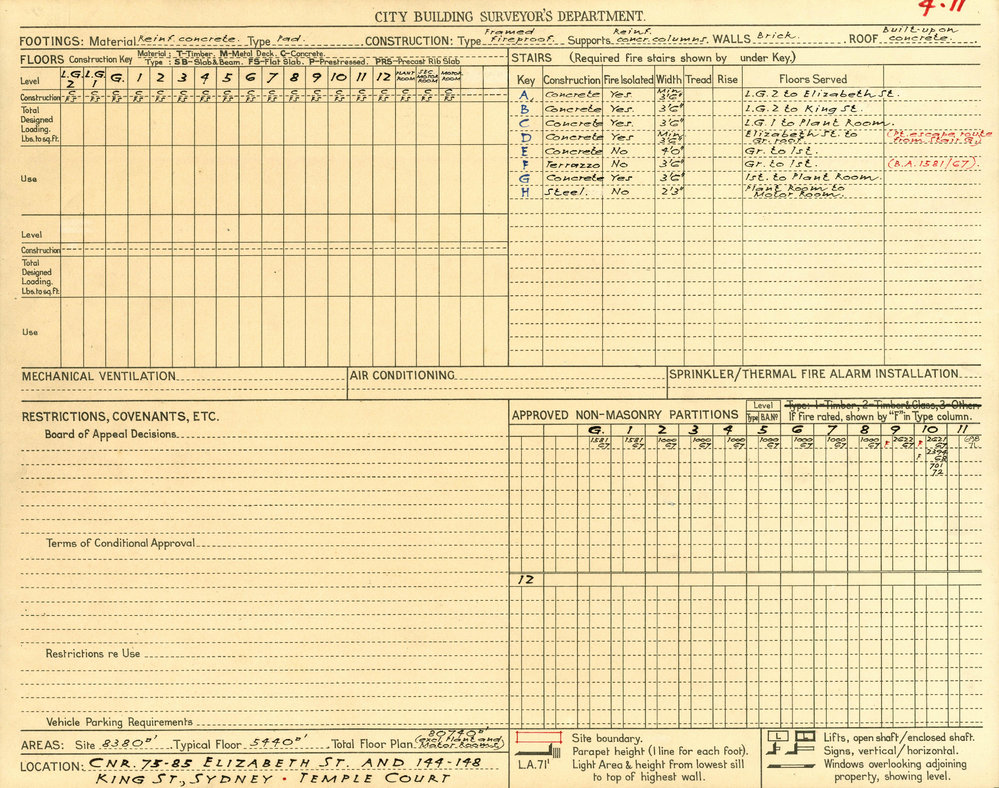 4.11
CITY BUILDING SURVEYOR'S DEPARTMENT.
FOOTINGS: Material Reinf. concrete. Type Pad. CONSTRUCTION: Type Framed Fireproof. Supports Reinf. concr. columns. WALLS Brick. ROOF built-up on concrete.
FLOORS Construction Key Material: T-Timber, M-Metal Deck, C-Concrete.
Type: SB-Slab & Beam. FS-Flat Slab. P-Prestressed. PRS-Precast Rib Slab
Level L.G. 2 L.G. 1 G. 1 2 3 4 5 6 7 8 9 10 11 12 PLANT ROOM SEC. MOTOR ROOM MOTOR ROOM
Construction C C C C C C C C C C C C C C C C C C
FS FS FS FS FS FS FS FS FS FS FS FS FS FS FS FS FS FS
Total
Designed
Loading.
Lbs. to sq. ft.
Use
Level
Construction
Total
Designed
Loading.
Lbs. to sq. ft.
Use
STAIRS (Required fire stairs shown by under Key.)
Key Construction Fire Isolated Width Tread Rise Floors Served
A. Concrete Yes. Min. 3'6" L.G. 2 to Elizabeth St.
B Concrete Yes. 3'6" L.G. 2 to King St.
C Concrete Yes. 3'6" L.G. 1 to Plant Room.
D Concrete Yes Min. 3'6" Elizabeth St. to Gr. roof. (Pt. escape route from Stair G.)
E Concrete No 4'0" Gr. to 1st.
F Terrazzo No 3'6" Gr. to 1st. (B.A. 1581/67)
G Concrete Yes 3'6" 1st. to Plant Room.
H Steel. No 2'3" Plant Room to Motor Room.
MECHANICAL VENTILATION AIR CONDITIONING SPRINKLER/THERMAL FIRE ALARM INSTALLATION
RESTRICTIONS, COVENANTS, ETC.
Board of Appeal Decisions.
Terms of Conditional Approval
Restrictions re Use
Vehicle Parking Requirements
APPROVED NON-MASONRY PARTITIONS Level Type: 1-Timber, 2-Timber & Glass, 3-Other.
Type B.A.Nº If Fire rated, shown by "F" in Type column.
G. 1 2 3 4 5 6 7 8 9 10 11
1581 1581 1000 1000 1000 1000 1000 1000 1000 F 2622 F 2621 698
67 67 67 67 67 67 67 67 67 67 67 72
F 2394
68
701
72
12
AREAS: Site 8380□' Typical Floor 5440□' Total Floor Plan 80740□' (excl. Plant and Motor Rooms)
LOCATION: CNR. 75-85 ELIZABETH ST. AND 144-148
KING ST., SYDNEY • TEMPLE COURT
Site boundary.
Parapet height (1 line for each foot).
L.A. 71' Light Area & height from lowest sill
to top of highest wall.
L L Lifts, open shaft/enclosed shaft.
Signs, vertical/horizontal.
Windows overlooking adjoining
property, showing level.